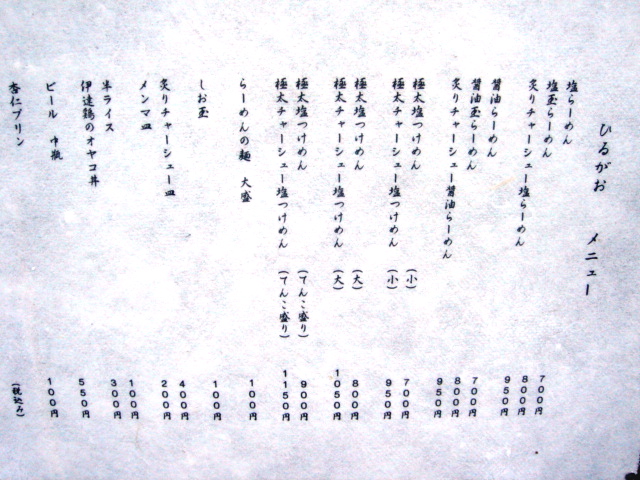 ひるがお メニュー
塩らーめん 700円
塩玉らーめん 800円
炙りチャーシュー塩らーめん 950円
醤油らーめん 700円
醤油玉らーめん 800円
炙りチャーシュー醤油らーめん 950円
極太塩つけめん (小) 700円
極太チャーシュー塩つけめん (小) 950円
極太塩つけめん (大) 800円
極太チャーシュー塩つけめん (大) 1050円
極太塩つけめん (てんこ盛り) 900円
極太チャーシュー塩つけめん (てんこ盛り) 1150円
らーめんの麺 大盛 100円
しお玉 100円
炙りチャーシュー皿 400円
メンマ皿 200円
半ライス 100円
伊達鶏のオヤコ丼 300円
ビール 中瓶 550円
杏仁プリン 100円
(税込み)